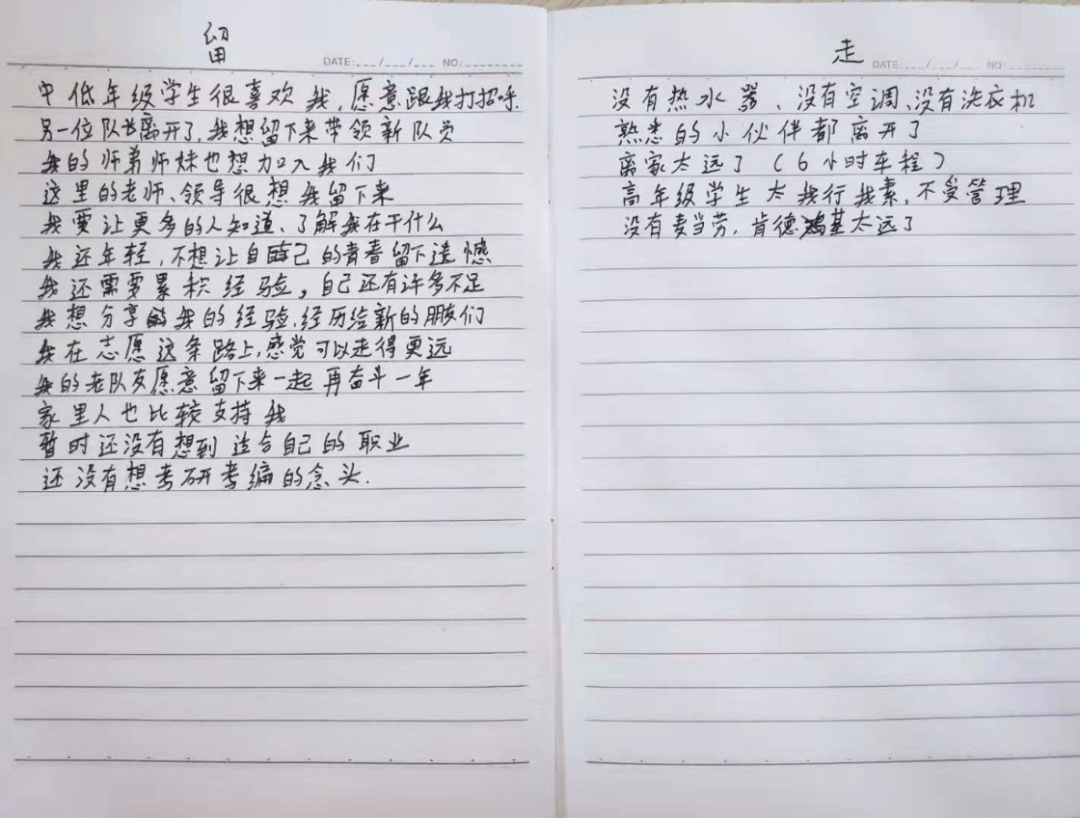 留
DATE:___/___/___ NO:______
中低年级学生很喜欢我，愿意跟我打招呼.
另一位队长离开了，我想留下来带领新队员
我的师弟师妹也想加入我们
这里的老师、领导很想我留下来
我要让更多的人知道、了解我在干什么
我还年轻，不想让自己的青春留下遗憾
我还需要累积经验，自己还有许多不足
我想分享我的经验、经历给新的朋友们
我在志愿这条路上，感觉可以走得更远
我的老队友愿意留下来一起再奋斗一年
家里人也比较支持我
暂时还没有想到适合自己的职业
还没有想考研考编的念头.
走
DATE:___/___/___ NO:______
没有热水器、没有空调、没有洗衣机
熟悉的小伙伴都离开了
离家太远了（6小时车程）
高年级学生太我行我素，不受管理
没有麦当劳，肯德基太远了